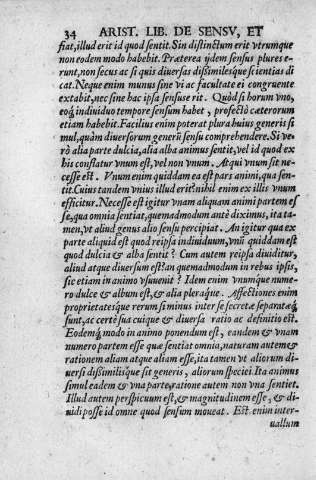 34 ARIST. LIB. DE SENSV, ET
fiat, illud erit id quod sentit. Sin distinctum erit vtrumque
non eodem modo habebit. Præterea ijdem sensus plures e-
runt, non secus ac si quis diuersas dissimilesque scientias di
cat. Neque enim munus sine vi ac facultate ei congruente
extabit, nec sine hac ipsa sensus erit. Quòd si horum vno,
eoq́; indiuiduo tempore sensum habet, profectò cæterorum
etiam habebit. Facilius enim poterat plura huius generis si
mul, quàm diuersorum generũ sensu comprehendere. Si ve-
rò alia parte dulcia, alia alba animus sentit, vel id quod ex
his conflatur vnum est, vel non vnum. Atqui vnum sit ne-
cesse est. Vnum enim quiddam ea est pars animi, qua sen-
tit. Cuius tandem vnius illud erit? nihil enim ex illis vnum
efficitur. Necesse est igitur vnam aliquam animi partem es
se, qua omnia sentiat, quemadmodum antè diximus, ita ta-
men, vt aliud genus alio sensu percipiat. An igitur qua ex
parte aliquid est quod reipsa indiuiduum, vnũ quiddam est
quod dulcia & alba sentit? Cum autem reipsa diuiditur,
aliud atque diuersum est? an quemadmodum in rebus ipsis,
sic etiam in animo vsuuenit? Idem enim vnumque nume-
ro dulce & album est, & alia pleraque. Affectiones enim
proprietatesque rerum si minus inter se secretæ separatæq́;
sunt, ac certè sua cuique & diuersa ratio ac definitio est.
Eodemq́; modo in animo ponendum est, eandem & vnam
numero partem esse quæ sentiat omnia, naturam autem &
rationem aliam atque aliam esse, ita tamen vt aliorum di-
uersi dissimilisque sit generis, aliorum speciei. Ita animus
simul eadem & vna parte, ratione autem non vna sentiet.
Illud autem perspicuum est, & magnitudinem esse, & di-
uidi posse id omne quod sensum moueat. Est enim inter-
uallum